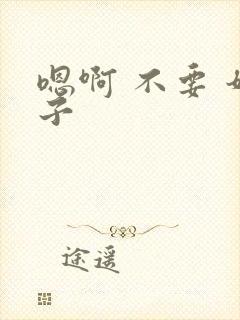 嗯啊 不要
子
途遥